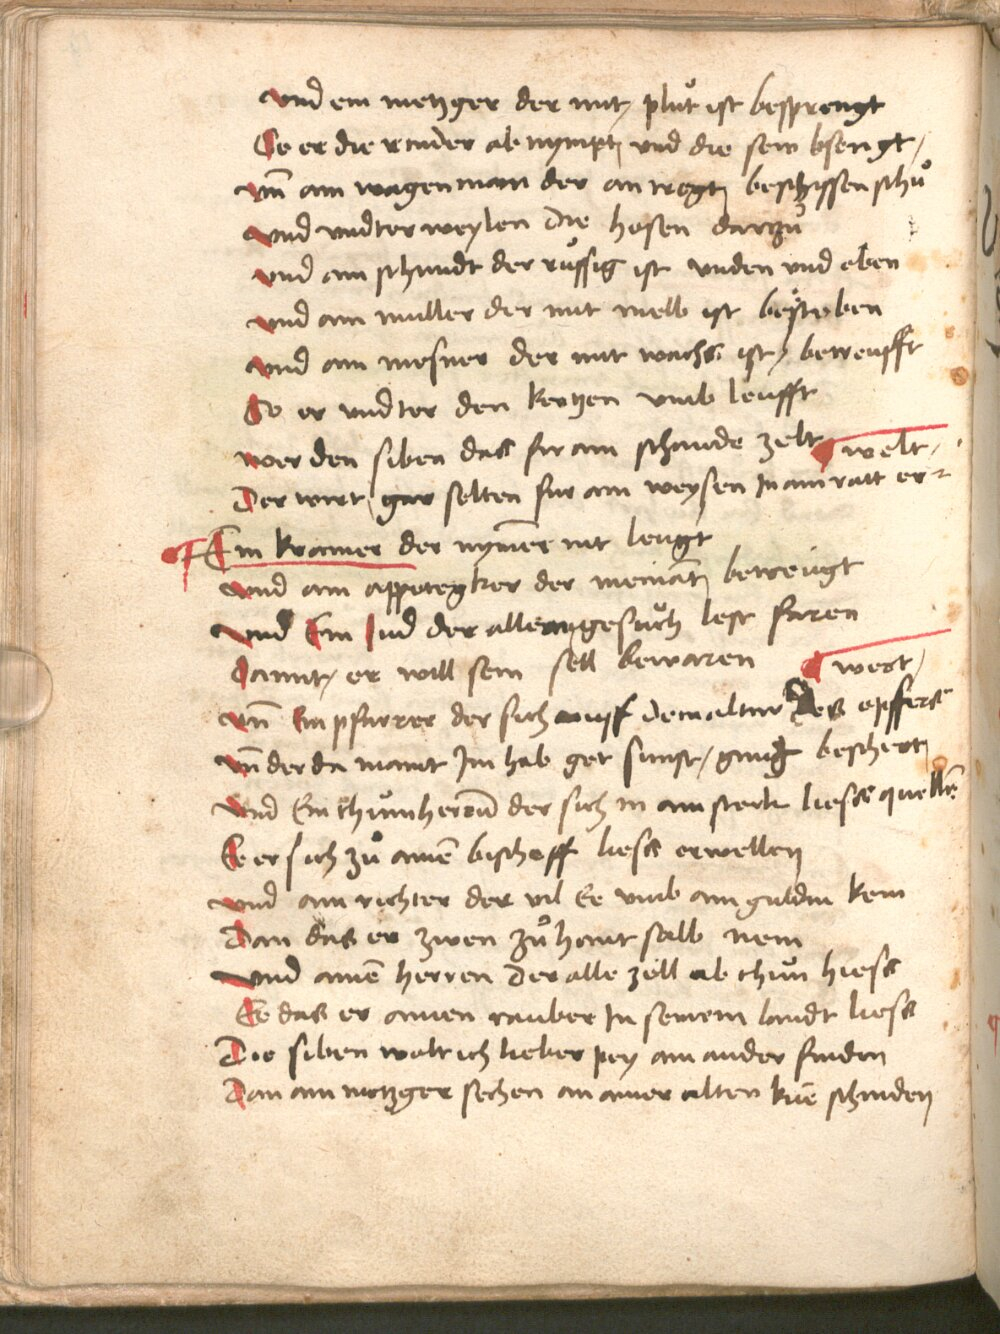 vnd ein metzger der mit plůt ist besprengt
So er die rinder ab nympt vnd die sew bsengt
vnd am wagenman der an tregt beschissen schů
vnd vndterweylen die hosen darzů
vnd am schmidt der růssig ist vnden vnd oben
vnd am muller der mit melb ist bestoben
vnd am mesner der mit wachs ist betreufft
So er vndter den kertzen vmb leufft
wer den siben das fur am schande zelt
Der wirt gar selten fur am weysen In aim ratt er welt
Ein kramer der nymer nit leugt
vnd am appotegker der nieman betreugt
vnd Ein Jud der allen gesuch lest faren
Damit er will sein sell bewaren
vnd Ein pfarrer der sich auff dem altar des opffers wert
vnd der da maint Im hab got sunst gnug beschert
vnd Ein thumherrn der sich in am sterb liess quellen
Ee er sich zů ainem bischoff liess erwellen
vnd am richter der vil Ee vmb am guldin kem
Dan das er zwen zů hant salb nem
vnd ainem herren der alle zoll ab thun hiess
Ee das er ainen rauber In seinem landt liess
Die siben wolt ich lieber pey am ander finden
Dan am metzger sehen an ainer alten kue schinden